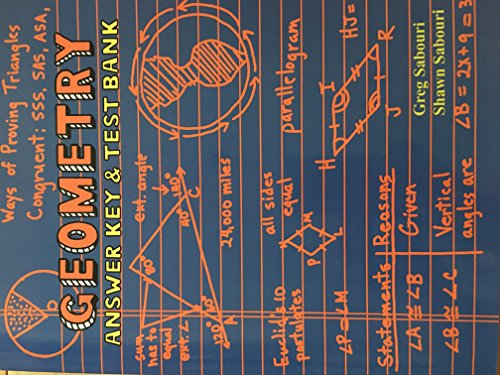 Ways of Proving Triangles
Congruent: SSS, SAS, ASA,
GEOMETRY
ANSWER KEY & TEST BANK
sum
has to
equal
ext. ∠
ext. angle
80°
40°
140°
C
120°
A
24,000 miles
Euclid's 10
postulates
all sides
equal
P
M
L
parallelogram
HJ=
H
I
R
J
∠P≅∠M
Statements
Reasons
∠A ≅ ∠B
Given
∠B ≅ ∠C
Vertical
angles are
Greg Sabouri
Shawn Sabouri
∠B = 2x+9 = 3